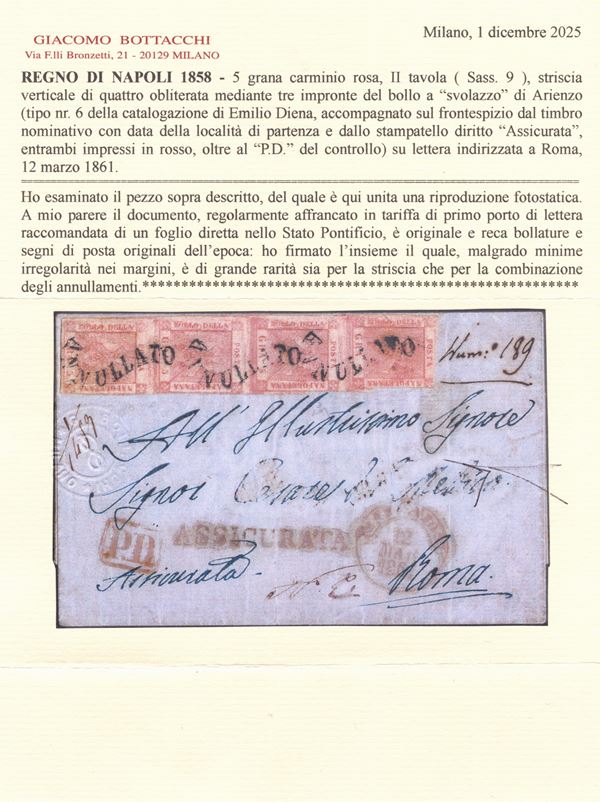 GIACOMO BOTTACCHI
Via F.lli Bronzetti, 21 - 20129 MILANO
Milano, 1 dicembre 2025
REGNO DI NAPOLI 1858 - 5 grana carminio rosa, II tavola ( Sass. 9 ), striscia
verticale di quattro obliterata mediante tre impronte del bollo a “svolazzo” di Arienzo
(tipo nr. 6 della catalogazione di Emilio Diena, accompagnato sul frontespizio dal timbro
nominativo con data della località di partenza e dallo stampatello diritto “Assicurata”,
entrambi impressi in rosso, oltre al “P.D.” del controllo) su lettera indirizzata a Roma,
12 marzo 1861.
Ho esaminato il pezzo sopra descritto, del quale è qui unita una riproduzione fotostatica.
A mio parere il documento, regolarmente affrancato in tariffa di primo porto di lettera
raccomandata di un foglio diretta nello Stato Pontificio, è originale e reca bollature e
segni di posta originali dell’epoca: ho firmato l’insieme il quale, malgrado minime
irregolarità nei margini, è di grande rarità sia per la striscia che per la combinazione
degli annullamenti.******************************************************
ANNULLATO ANNULLATO ANNULLATO
POSTA NAPOLETANA
Num.º 189
All' Illustrissimo Signore
Signor Cesare
ASSICURATA
P.D.
12
MAR
Assicurata
Roma